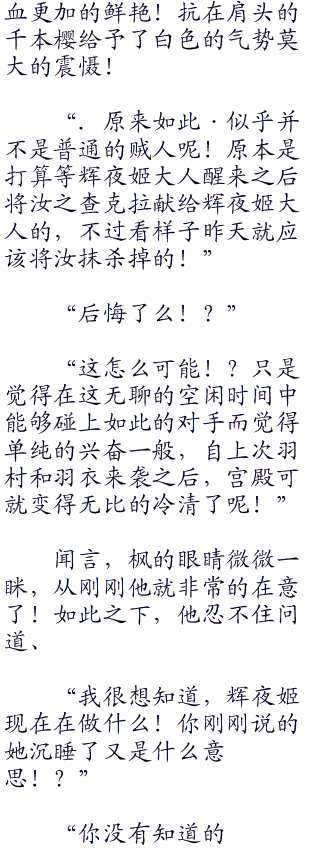 血更加的鲜艳！抗在肩头的
千本樱给予了白色的气势莫
大的震慑！
“．原来如此·似乎并
不是普通的贼人呢！原本是
打算等辉夜姬大人醒来之后
将汝之查克拉献给辉夜姬大
人的，不过看样子昨天就应
该将汝抹杀掉的！”
“后悔了么！？”
“这怎么可能！？只是
觉得在这无聊的空闲时间中
能够碰上如此的对手而觉得
单纯的兴奋一般，自上次羽
村和羽衣来袭之后，宫殿可
就变得无比的冷清了呢！”
闻言，枫的眼睛微微一
眯，从刚刚他就非常的在意
了！如此之下，他忍不住问
道、
“我很想知道，辉夜姬
现在在做什么！你刚刚说的
她沉睡了又是什么意
思！？”
“你没有知道的